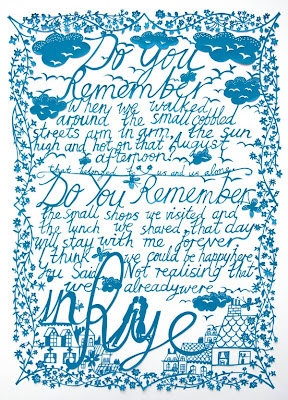 Do You
Remember
When we walked
around the small cobbled
streets arm in arm, the sun
high and hot on that August
afternoon
that belonged to us and us alone
Do You Remember
the small shops we visited and
the lunch we shared, that day
will stay with me forever
I think we could be happy here
you said Not realising that
we already were
in Rye